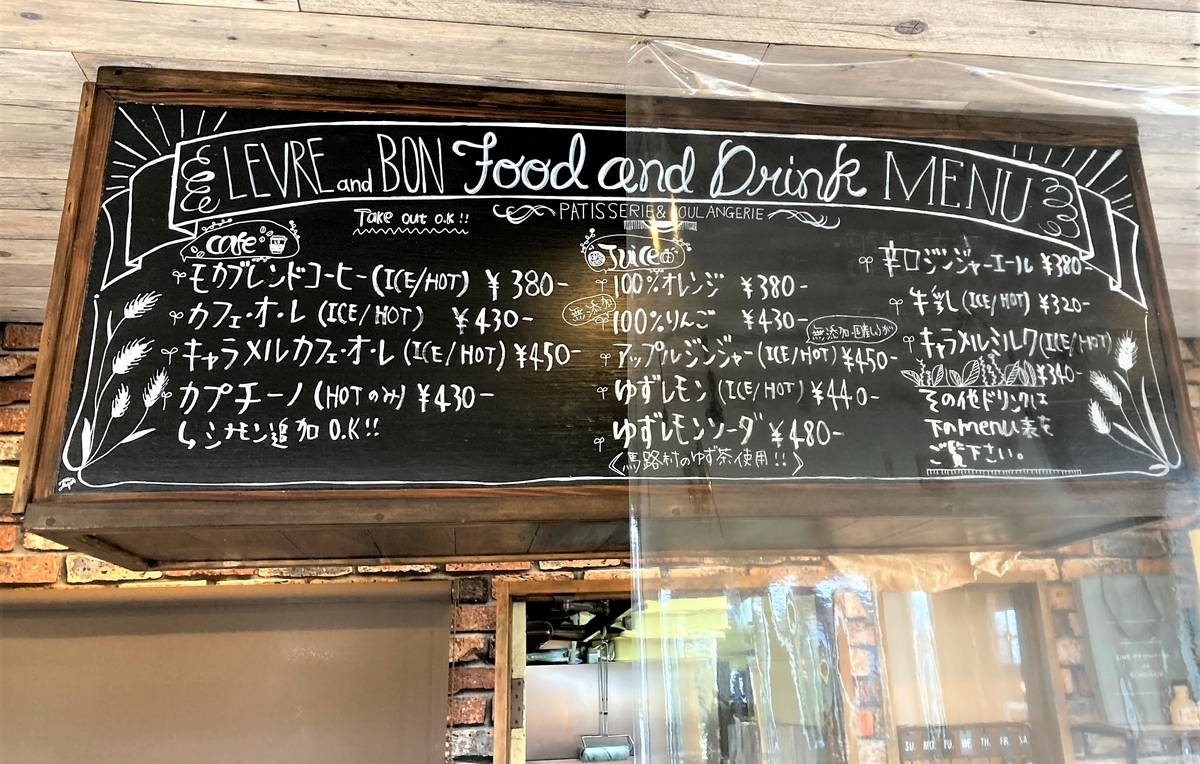 LEVRE and BON Food and Drink MENU
PATISSERIE & BOULANGERIE
Take out O.K!!
cafe
モカブレンドコーヒー (ICE/HOT) ¥380-
カフェ・オ・レ (ICE/HOT) ¥430-
キャラメルカフェ・オ・レ (ICE/HOT) ¥450-
カプチーノ (HOTのみ) ¥430-
シナモン追加 O.K!!
Juice
100%オレンジ ¥380-
無添加
100%りんご ¥430-
無添加・国産しょうが
アップルジンジャー (ICE/HOT) ¥450-
ゆずレモン (ICE/HOT) ¥440-
ゆずレモンソーダ ¥480-
〈馬路村のゆず茶使用!!〉
辛口ジンジャーエール ¥380-
牛乳 (ICE/HOT) ¥320-
キャラメルミルク (ICE/HOT)
¥340-
その他ドリンクは
下のmenu表を
ご覧下さい。
SU. MO. TU. WE. TH. FR. SA